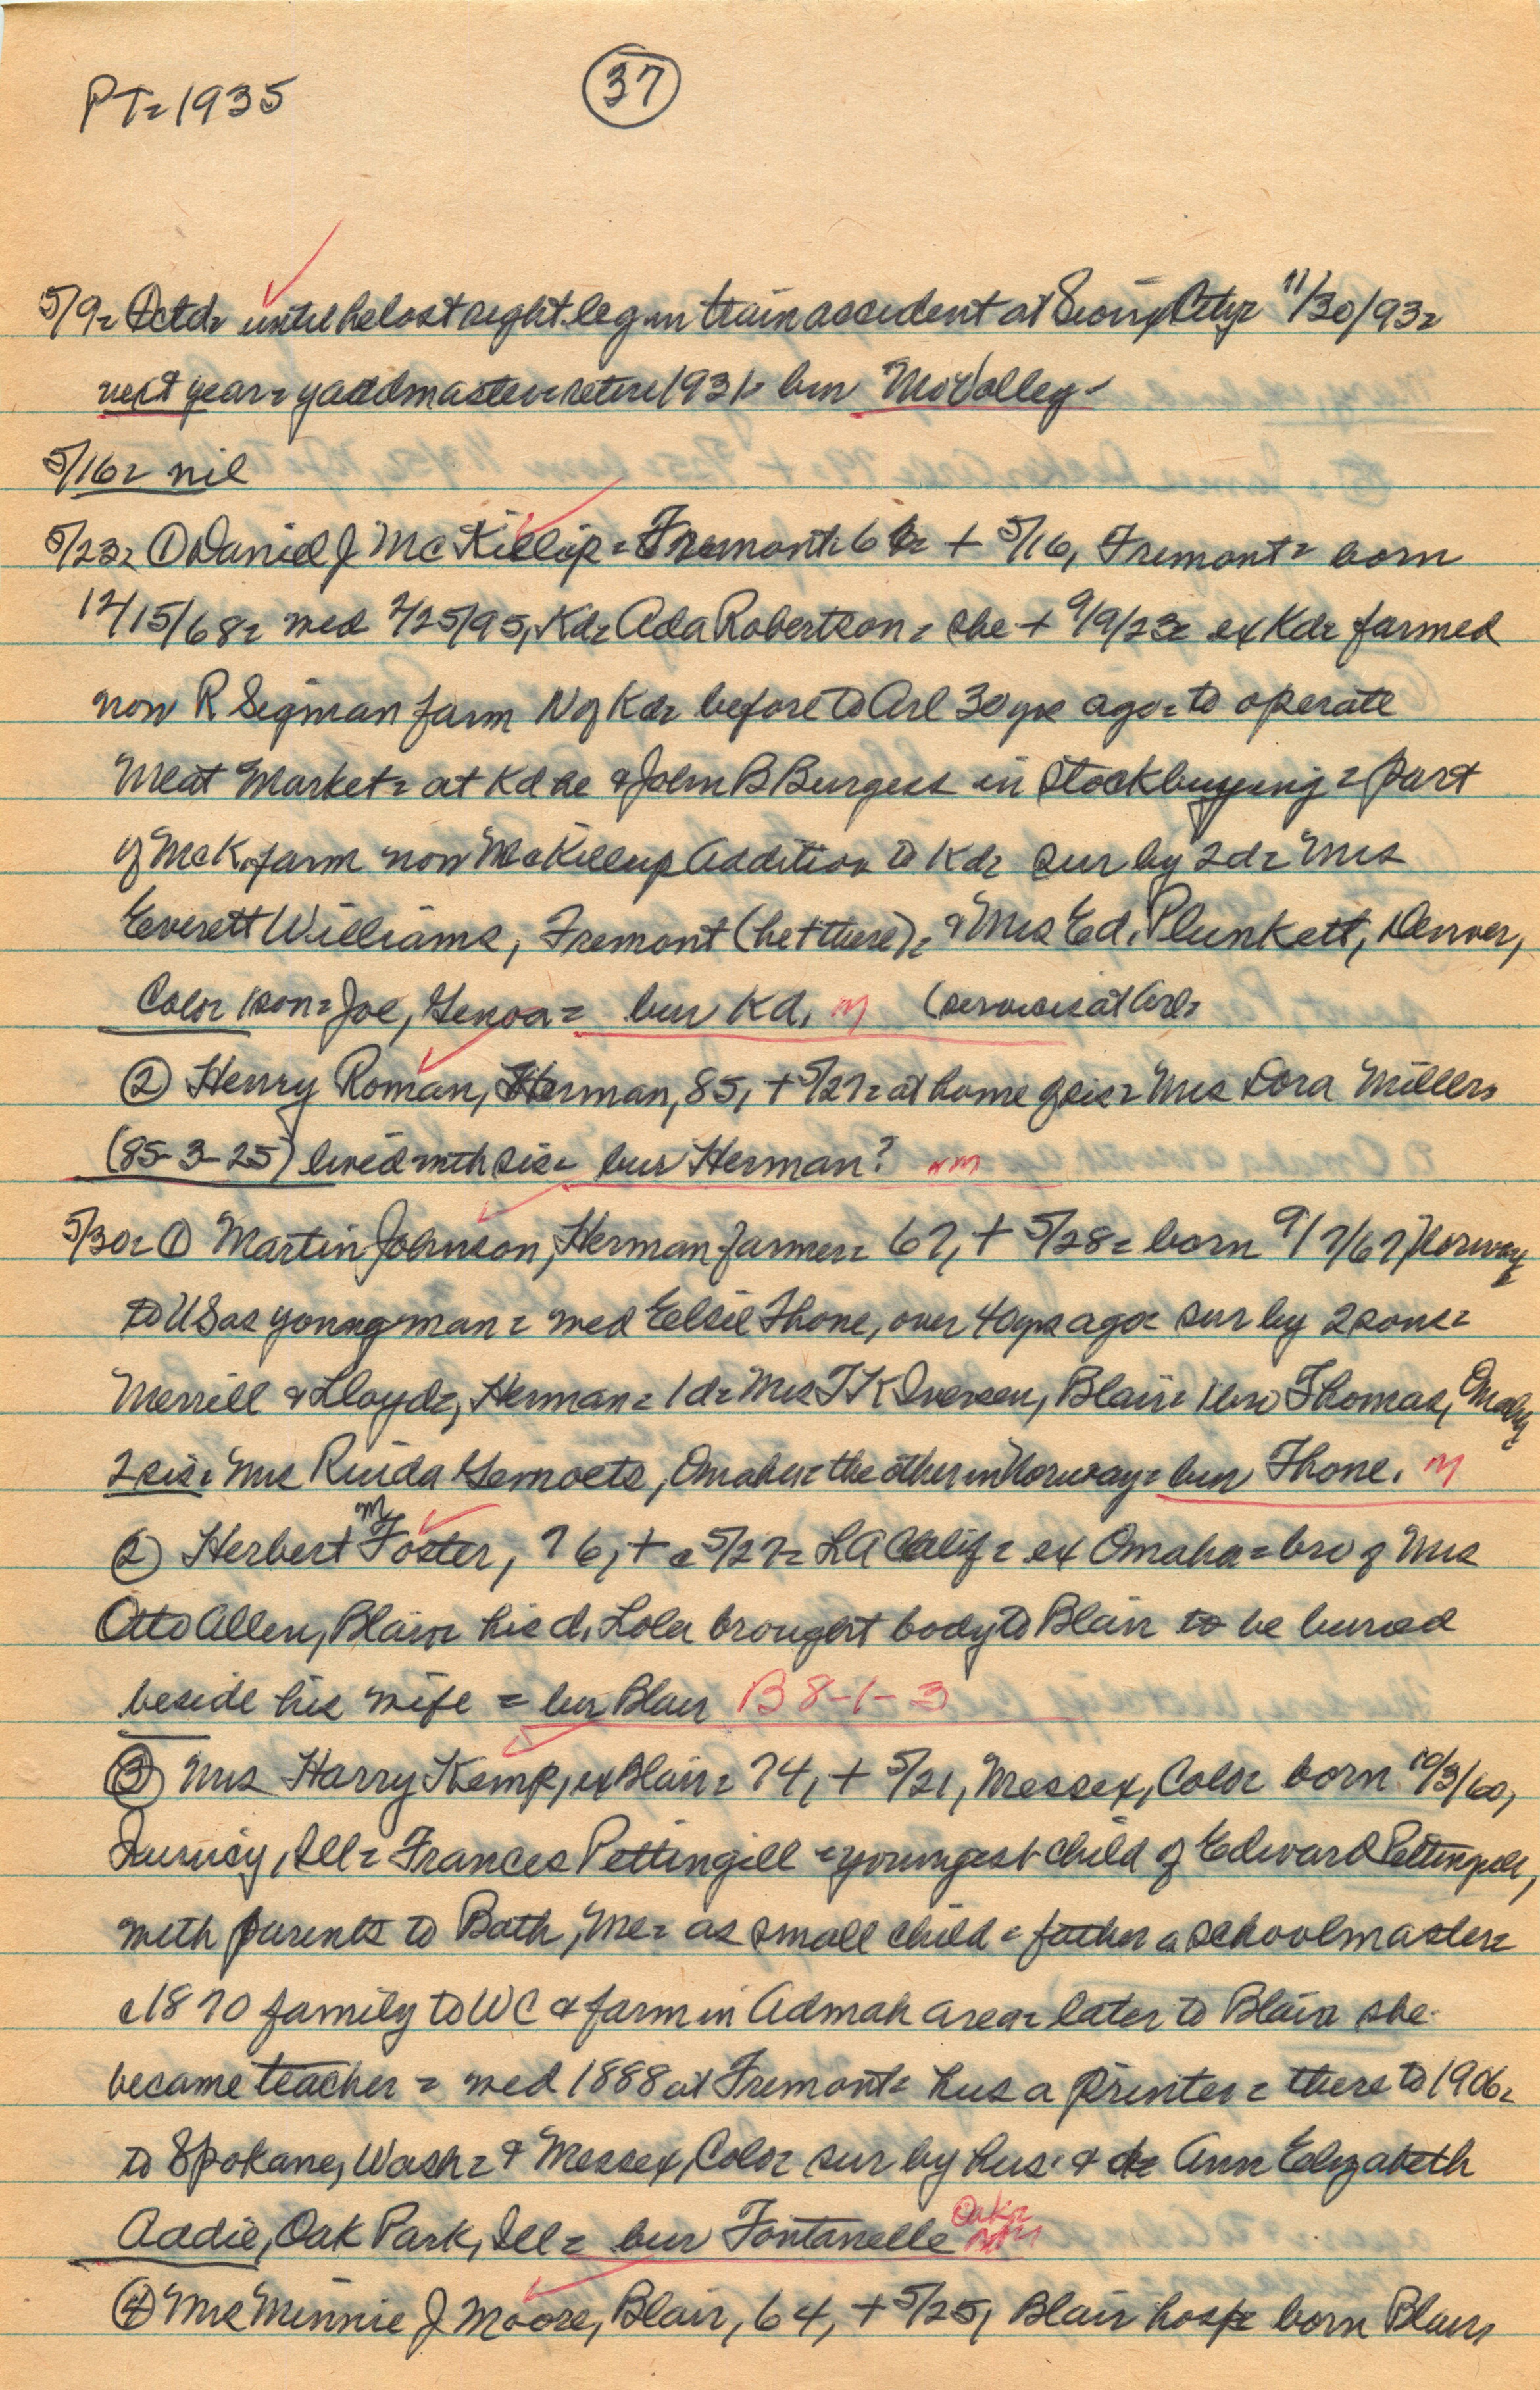 PT=1935
37
5/9= Octd= until he lost right leg in train accident at Sioux City= 11/30/93=
next year= yardmaster= retire 1931= bur Mo Valley-
5/16= nil
5/23= ① Daniel J McKillip= Fremont= 6 + 5/16, Fremont= born
12/15/68= wed 2/25/95, Kd= Ada Robertson= she + 9/9/23= ex Kd= farmed
now R Sigman farm N of Kd= before to Arl 30 yrs ago= to operate
Meat Market= at Kd he & John B Burgess in stockbuying= part
of McK. farm now McKillip Addition to Kd= sur by 2d= Mrs
Everett Williams, Fremont (he + there)= & Mrs Ed. Plunkett, Denver,
Colo= 1 son= Joe, Genoa= bur Kd. M (services at Arl=
② Henry Roman, Herman, 85, + 5/27= at home of sis= Mrs Dora Millers
(85-3-25) lived with sis= bur Herman? nm
5/30= ① Martin Johnson, Herman farmer= 67, + 5/28= born 9/7/67 Norway
to US as young man= wed Elsie Thone, over 40 yrs ago= sur by 2 sons=
Merrill & Lloyd=, Herman= 1 d= Mrs T K Iversen, Blair= 1 bro Thomas, Omaha
2 sis= Mrs Rinda, Omaha= the other in Norway= bur Thone. M
② Herbert M Foster, 76, + c 5/27= LA Calif= ex Omaha= bro of Mrs
Otto Allen, Blair= his d, Lola brought body to Blair to be buried
beside his wife = bur Blair B 8-1-3
③ Mrs Harry Kemp, ex Blair= 74, + 5/21, Messex, Colo= born 10/3/60,
Quincy, Ill= Frances Pettingill= youngest child of Edward Pettingill,
with parents to Bath, Me= as small child= father a schoolmaster=
c 1870 family to WC & farm in Admah area= later to Blair= she
became teacher= wed 1888 at Fremont= hus a printer= there to 1906=
to Spokane, Wash= & Messex, Colo= sur by hus. & d= Ann Elizabeth
Addie, Oak Park, Ill= bur Fontanelle Oak=
④ Mrs Minnie J Moore, Blair, 64, + 5/25, Blair hosp= born Blair,